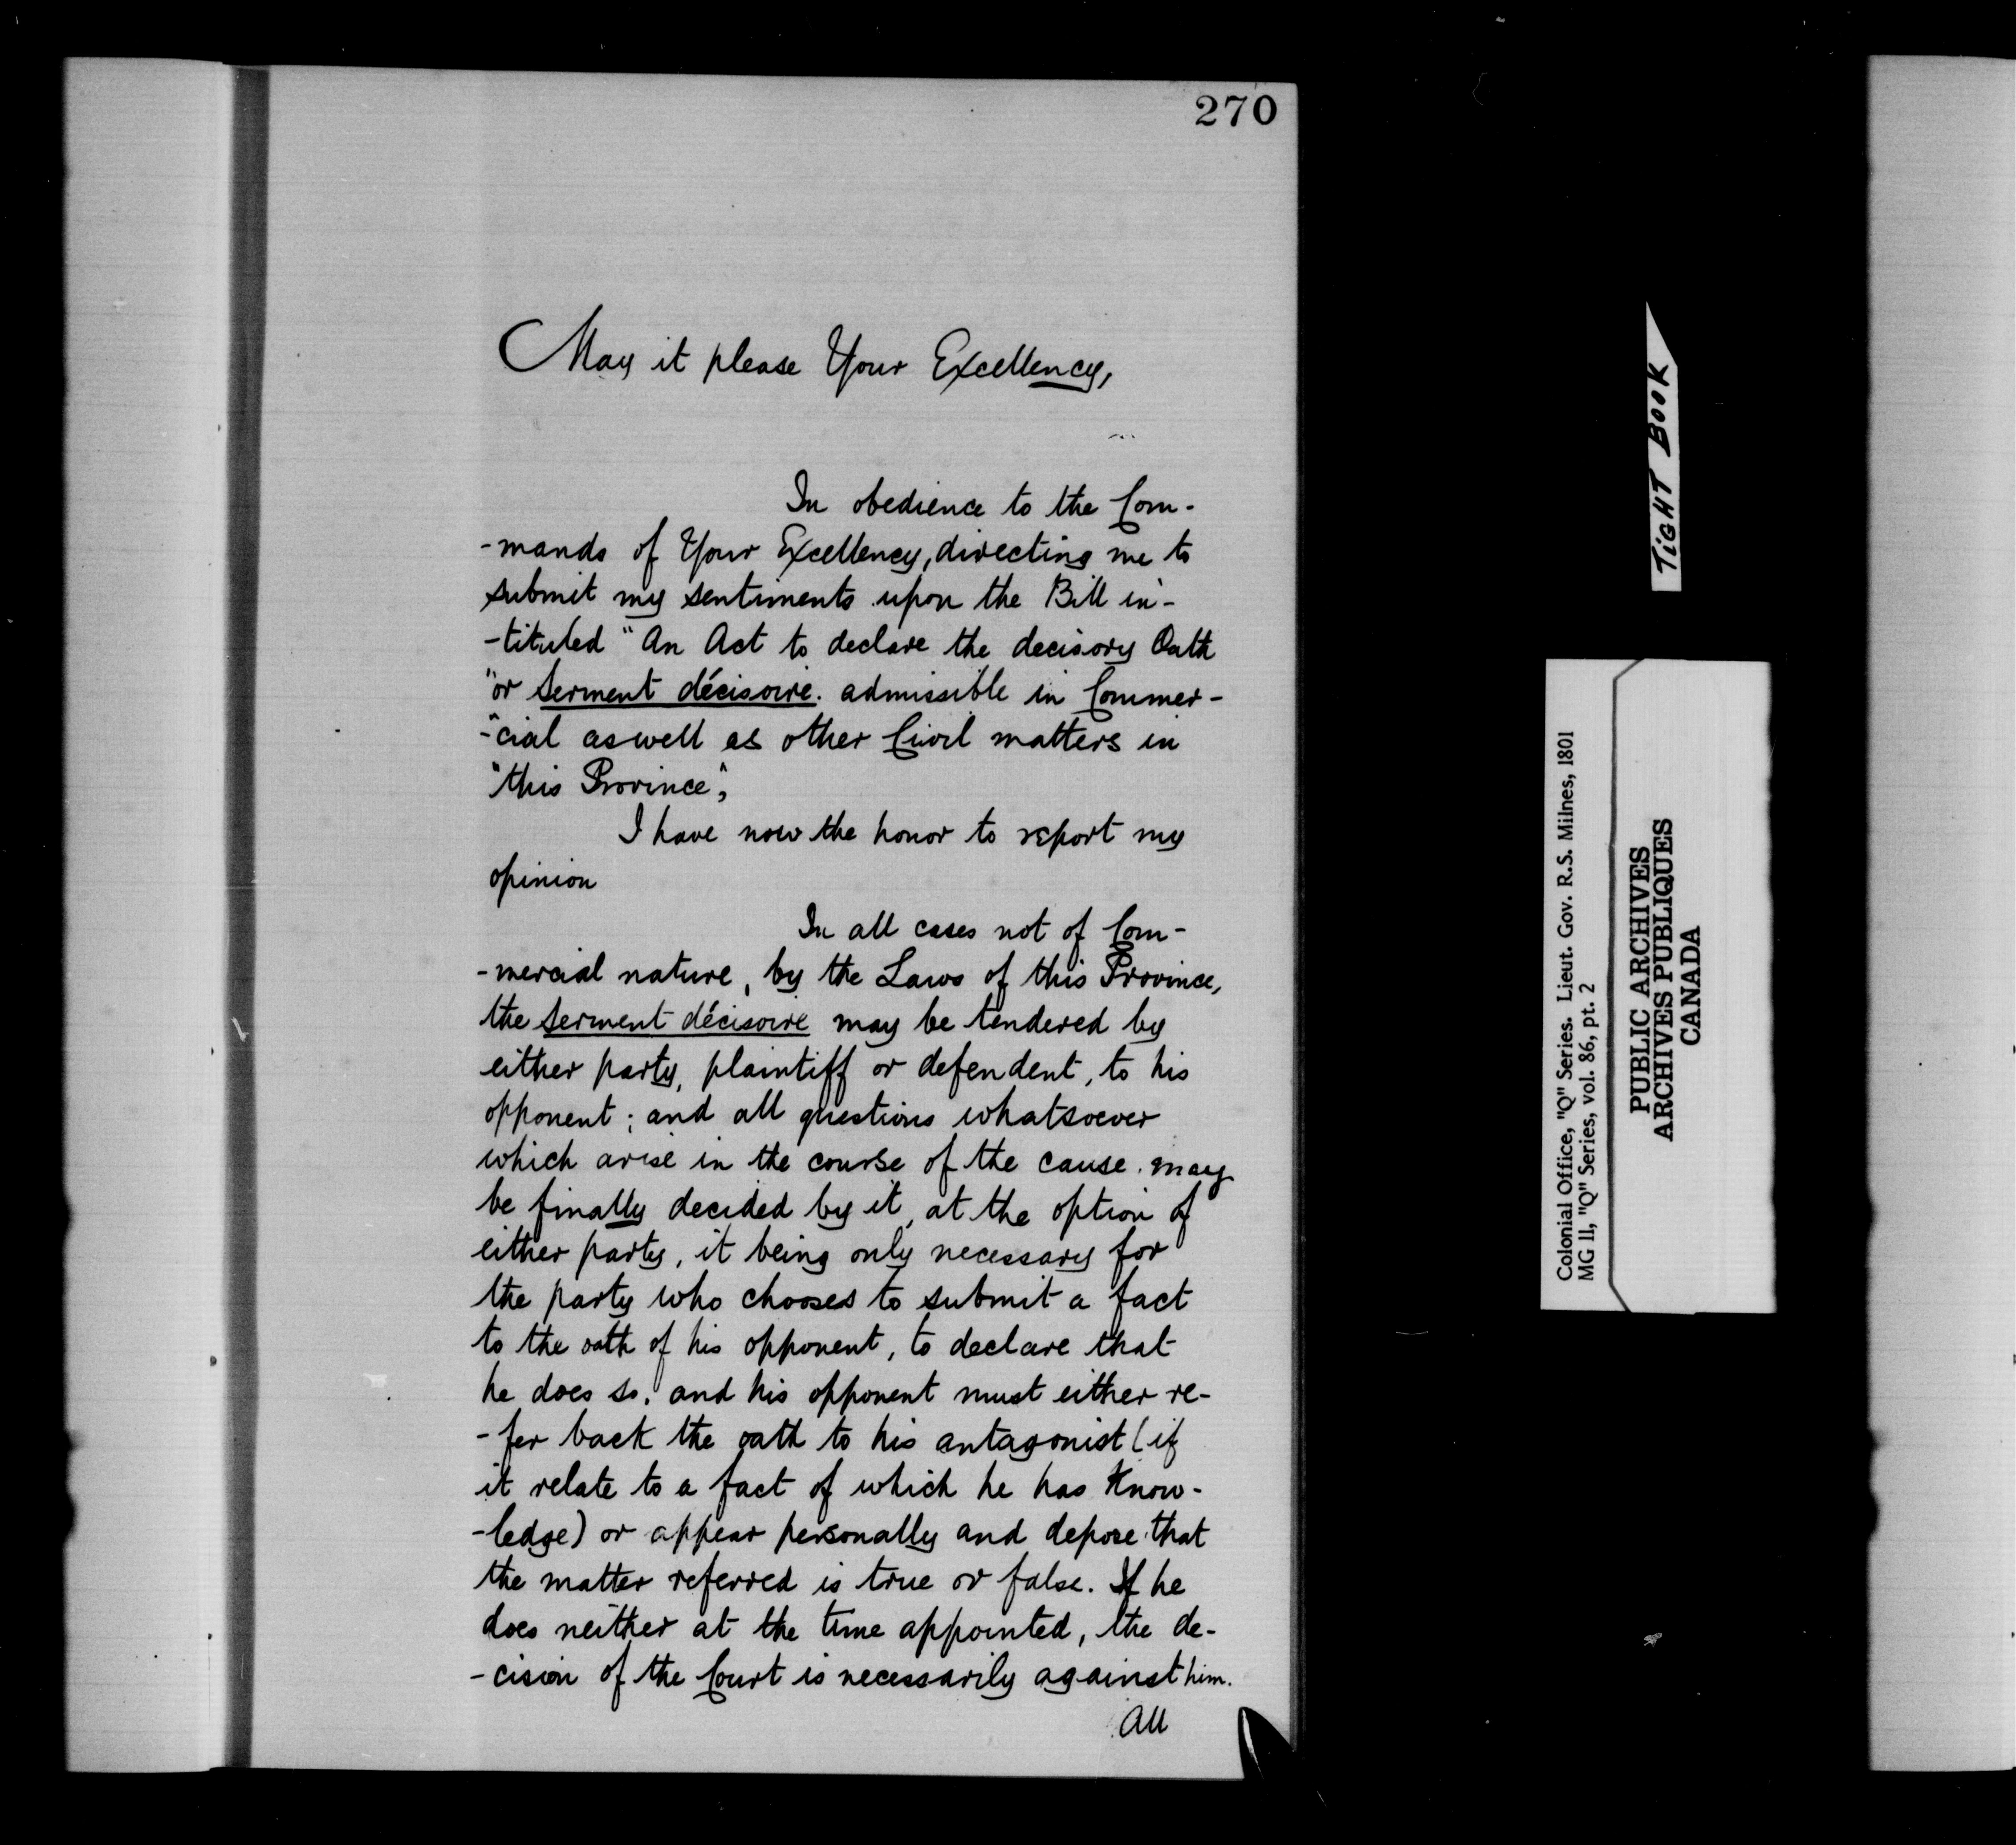 270
May it please Your Excellency,
In obedience to the Com-
-mands of Your Excellency, directing me to
submit my sentiments upon the Bill in-
-tituled "An Act to declare the decisory Oath
"or Serment décisoire. admissible in Commer-
-"cial aswell as other Civil matters in
"this Province",
I have now the honor to report my
opinion
In all cases not of Com-
-mercial nature, by the Laws of this Province,
the Serment décisoire may be tendered by
either party, plaintiff or defendent, to his
opponent; and all questions whatsoever
which arise in the course of the cause. may
be finally decided by it, at the option of
either party, it being only necessary for
the party who chooses to submit a fact
to the oath of his opponent, to declare that
he does so, and his opponent must either re-
-fer back the oath to his antagonist (if
it relate to a fact of which he has Know-
-ledge) or appear personally and depose that
the matter referred is true or false. If he
does neither at the time appointed, the de-
-cision of the Court is necessarily against him.
All
TIGHT BOOK
Colonial Office, "Q" Series. Lieut. Gov. R.S. Milnes, 1801
MG 11, "Q" Series, vol. 86, pt. 2
PUBLIC ARCHIVES
ARCHIVES PUBLIQUES
CANADA